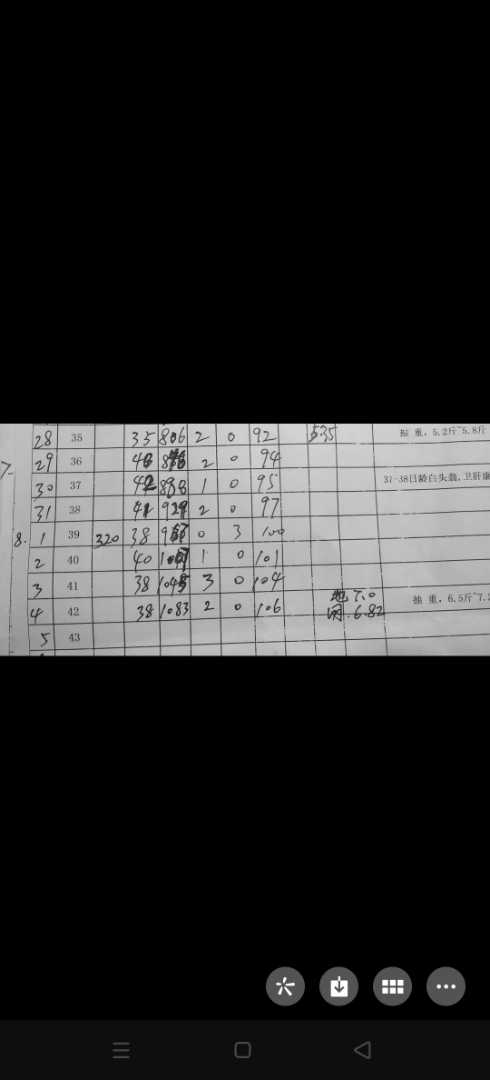 28 35 35 806 2 0 92 5.35 抽 重，5.2斤~5.8斤
7-
29 36 2 0 94
30 37 42 1 0 95 37-38日龄白头翁，卫肝康
31 38 41 929 2 0 97
8. 1 39 320 38 0 3 100
2 40 40 1 0 101
3 41 38 1045 3 0 104
4 42 38 1083 2 0 106 地 7.0 抽 重，6.5斤~7.2
网 6.82
5 43